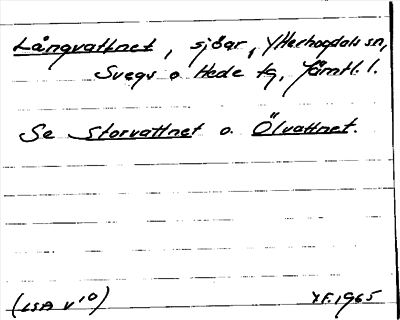 Långvattnet, sjöar, Ytterhogdals sn,
Svegs o Hede tg, Jämtl. l.
Se Storvattnet o. Ölvattnet.
(LSA V¹⁰) YF.1965